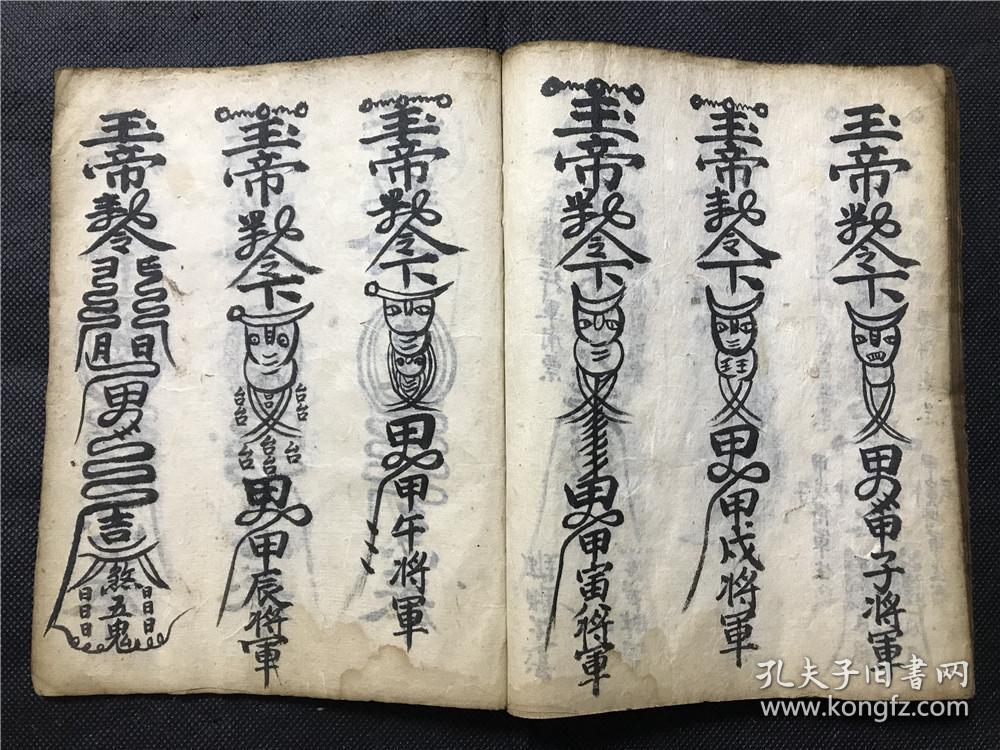 玉帝勅令下男甲子将軍
玉帝勅令下王王甲甲戌将軍
玉帝勅令下甲寅将軍
玉帝勅令下甲午将軍
玉帝勅令下台台台台台台台甲辰将軍
玉帝勅令日月男吉煞五鬼日日日日日日
孔夫子旧书网
www.kongfz.com